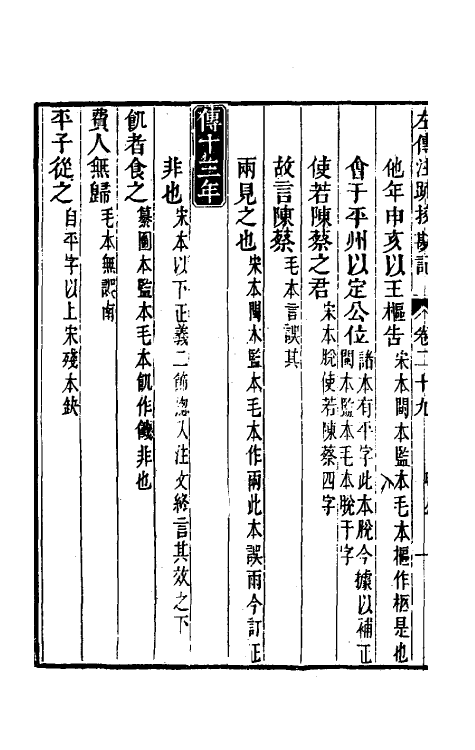 左傳注疏挍勘記 卷二十九
他年申亥以王樞告 宋本閩本監本毛本樞作柩是也
會于平州以定公位 諸本有平字此本脫今據以補正閩本監本毛本脫于字
使若陳蔡之君 宋本脫使若陳蔡四字
故言陳蔡 毛本言誤其
兩見之也 宋本閩本監本毛本作兩此本誤雨今訂正
傳十三年
非也 宋本以下正義二節總入注文終言其效之下
飢者食之 纂圖本監本毛本飢作饑非也
費人無歸 毛本無誤南
平子從之 自平字以上宋殘本缺